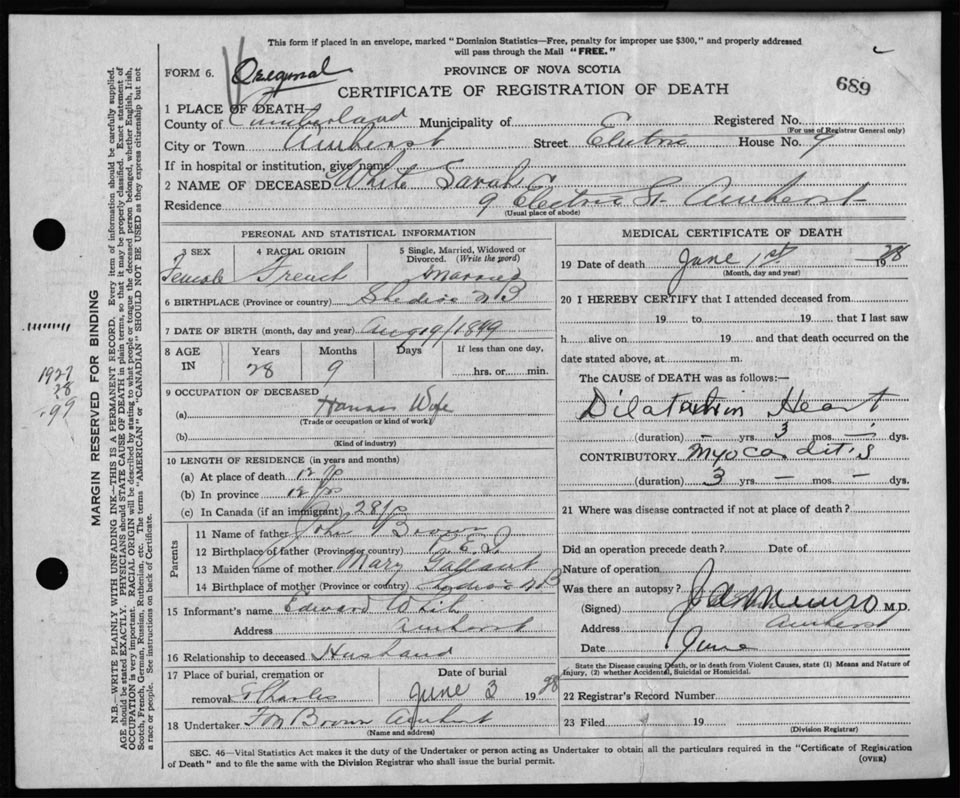 This form if placed in an envelope, marked "Dominion Statistics—Free, penalty for improper use $300," and properly addressed
will pass through the Mail "FREE."
FORM 6. Original
PROVINCE OF NOVA SCOTIA
CERTIFICATE OF REGISTRATION OF DEATH
689
1 PLACE OF DEATH—
County of Cumberland Municipality of Registered No.
(For use of Registrar General only)
City or Town Amherst Street Electric House No. 9
If in hospital or institution, give name
2 NAME OF DECEASED White Sarah
Residence 9 Electric St. Amherst
(Usual place of abode)
PERSONAL AND STATISTICAL INFORMATION
3 SEX 4 RACIAL ORIGIN 5 Single, Married, Widowed or
Divorced. (Write the word)
Female French Married
6 BIRTHPLACE (Province or country) Shediac NB
7 DATE OF BIRTH (month, day and year) Aug 19/1899
8 AGE IN Years Months Days If less than one day,
28 9 hrs. or min.
9 OCCUPATION OF DECEASED
(a) House Wife
(Trade or occupation or kind of work)
(b)
(Kind of industry)
10 LENGTH OF RESIDENCE (in years and months)
(a) At place of death 12
(b) In province 12
(c) In Canada (if an immigrant) 28
Parents
11 Name of father John Brown
12 Birthplace of father (Province or country) P.E.I.
13 Maiden name of mother Mary Gallant
14 Birthplace of mother (Province or country) Shediac NB
15 Informant's name Edward White
Address Amherst
16 Relationship to deceased Husband
17 Place of burial, cremation or Date of burial
removal St Charles June 3 1928
18 Undertaker Brown Amherst
(Name and address)
MEDICAL CERTIFICATE OF DEATH
19 Date of death June 1st 1928
(Month, day and year)
20 I HEREBY CERTIFY that I attended deceased from
19 to 19 that I last saw
h alive on 19 and that death occurred on the
date stated above, at m.
The CAUSE OF DEATH was as follows:—
Dilatation Heart
(duration) — yrs. 3 mos. — dys.
CONTRIBUTORY Myocarditis
(duration) 3 yrs. — mos. — dys.
21 Where was disease contracted if not at place of death?
Did an operation precede death? Date of
Nature of operation
Was there an autopsy?
(Signed) Munro M.D.
Address Amherst
Date June
State the Disease causing Death, or in death from Violent Causes, state (1) Means and Nature of
Injury, (2) whether Accidental, Suicidal or Homicidal.
22 Registrar's Record Number
23 Filed 19
(Division Registrar)
SEC. 46—Vital Statistics Act makes it the duty of the Undertaker or person acting as Undertaker to obtain all the particulars required in the "Certificate of Registration
of Death" and to file the same with the Division Registrar who shall issue the burial permit.
(OVER)
MARGIN RESERVED FOR BINDING
N.B.—WRITE PLAINLY WITH UNFADING INK—THIS IS A PERMANENT RECORD. Every item of information should be carefully supplied.
AGE should be stated EXACTLY. PHYSICIANS should STATE CAUSE OF DEATH in plain terms, so that it may be properly classified. Exact statement of
OCCUPATION is very important. RACIAL ORIGIN will be described by stating to what people or tongue the deceased person belonged, whether English, Irish,
Scotch, French, German, Russian, Ruthenian, etc. The terms "AMERICAN" or "CANADIAN" SHOULD NOT BE USED as they express citizenship but not
a race or people. See instructions on back of Certificate.
1927
28
99